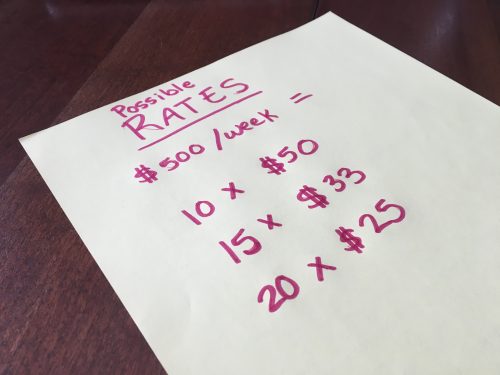 Possible
RATES
$500/week =
10 x $50
15 x $33
20 x $25